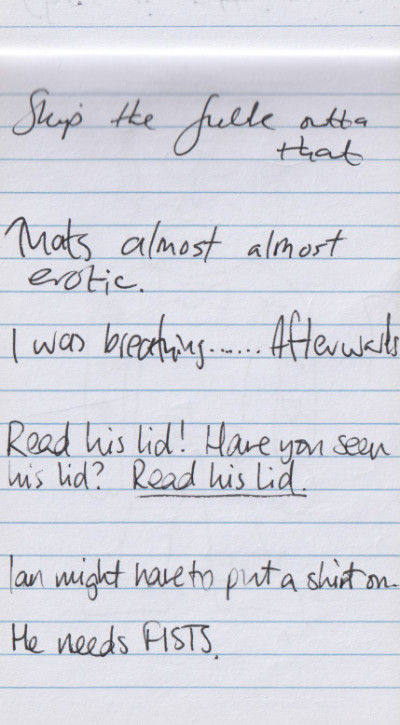 Skip the fulle outta
that
Mats almost almost
erotic.
I was breathing....... Afterwards
Read his lid! Have you seen
his lid? Read his lid.
Ian might have to put a shirt on.
He needs FISTS.